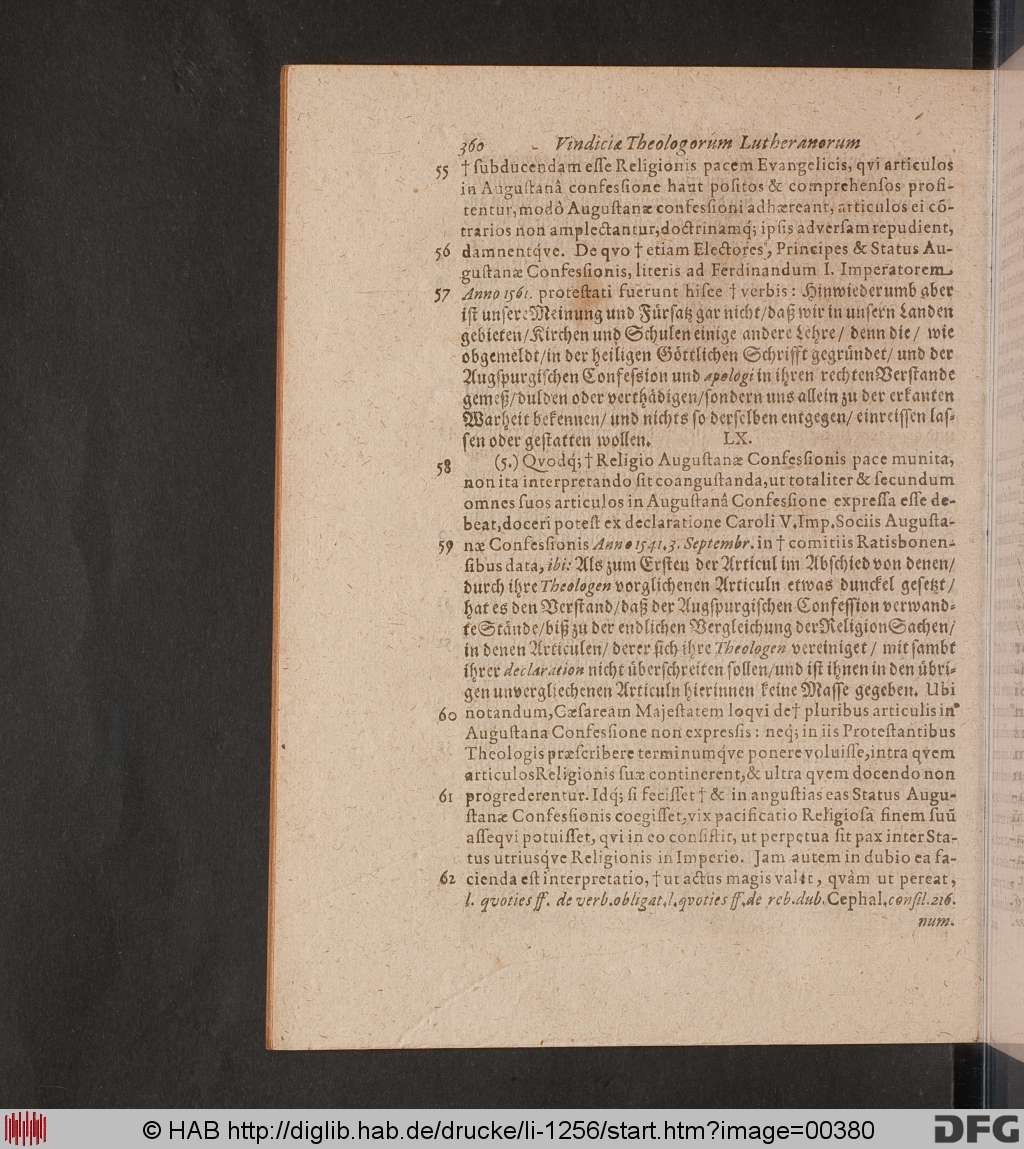 360 Vindiciæ Theologorum Lutheranorum
55 † ſubducendam eſſe Religionis pacem Evangelicis, qvi articulos
in Auguſtanâ confeſsione haut poſitos & comprehenſos profi-
tentur, modò Auguſtanæ confeſsioni adhæreant, articulos ei cõ-
trarios non amplectantur, doctrinamq́; ipſis adverſam repudient,
56 damnentq́ve. De qvo † etiam Electores, Principes & Status Au-
guſtanæ Confeſsionis, literis ad Ferdinandum I. Imperatorem
57 Anno 1561. proteſtati fuerunt hiſce † verbis: Hinwiederumb aber
iſt unſere Meinung und Fürſatz gar nicht/ daß wir in unſern Landen
gebieten/ Kirchen und Schulen einige andere Lehre/ denn die/ wie
obgemeldt/ in der heiligen Göttlichen Schrifft gegründet/ und der
Augſpurgiſchen Confeſsion und apologi in ihren rechten Verſtande
gemeß/ dulden oder verthädigen/ ſondern uns allein zu der erkanten
Warheit bekennen/ und nichts ſo derſelben entgegen/ einreiſſen laſ-
ſen oder geſtatten wollen. LX.
58 (5.) Qvodq́; † Religio Auguſtanæ Confeſsionis pace munita,
non ita interpretando ſit coanguſtanda, ut totaliter & ſecundum
omnes ſuos articulos in Auguſtanâ Confeſsione expreſſa eſſe de-
beat, doceri poteſt ex declaratione Caroli V. Imp. Sociis Auguſta-
59 næ Confeſsionis Anno 1541. 3. Septembr. in † comitiis Ratisbonen-
ſibus data, ibi: Als zum Erſten der Articul im Abſchied von denen/
durch ihre Theologen vorglichenen Articuln etwas dunckel geſetzt/
hat es den Verſtand/ daß der Augſpurgiſchen Confeſſion verwand-
te Stände/ biß zu der endlichen Vergleichung der Religion Sachen/
in denen Articulen/ derer ſich ihre Theologen vereiniget/ mit ſambt
ihrer declaration nicht überſchreiten ſollen/ und iſt ihnen in den übri-
gen unvergliechenen Articuln hierinnen keine Maſſe gegeben. Ubi
60 notandum, Cæſaream Majeſtatem loqvi de † pluribus articulis in
Auguſtana Confeſsione non expreſsis: neq́; in iis Proteſtantibus
Theologis præſcribere terminumq́ve ponere voluiſſe, intra qvem
articulos Religionis ſuæ continerent, & ultra qvem docendo non
61 progrederentur. Idq́; ſi feciſſet † & in anguſtias eas Status Augu-
ſtanæ Confeſsionis coegiſſet, vix pacificatio Religioſa finem ſuũ
aſſeqvi potuiſſet, qvi in eo conſiſtit, ut perpetua ſit pax inter Sta-
tus utriusq́ve Religionis in Imperio. Jam autem in dubio ea fa-
62 cienda eſt interpretatio, † ut actus magis valeat, qvàm ut pereat,
l. qvoties ff. de verb. obligat. l. qvoties ff. de reb. dub. Cephal. conſil. 216.
num.
© HAB http://diglib.hab.de/drucke/li-1256/start.htm?image=00380
DFG